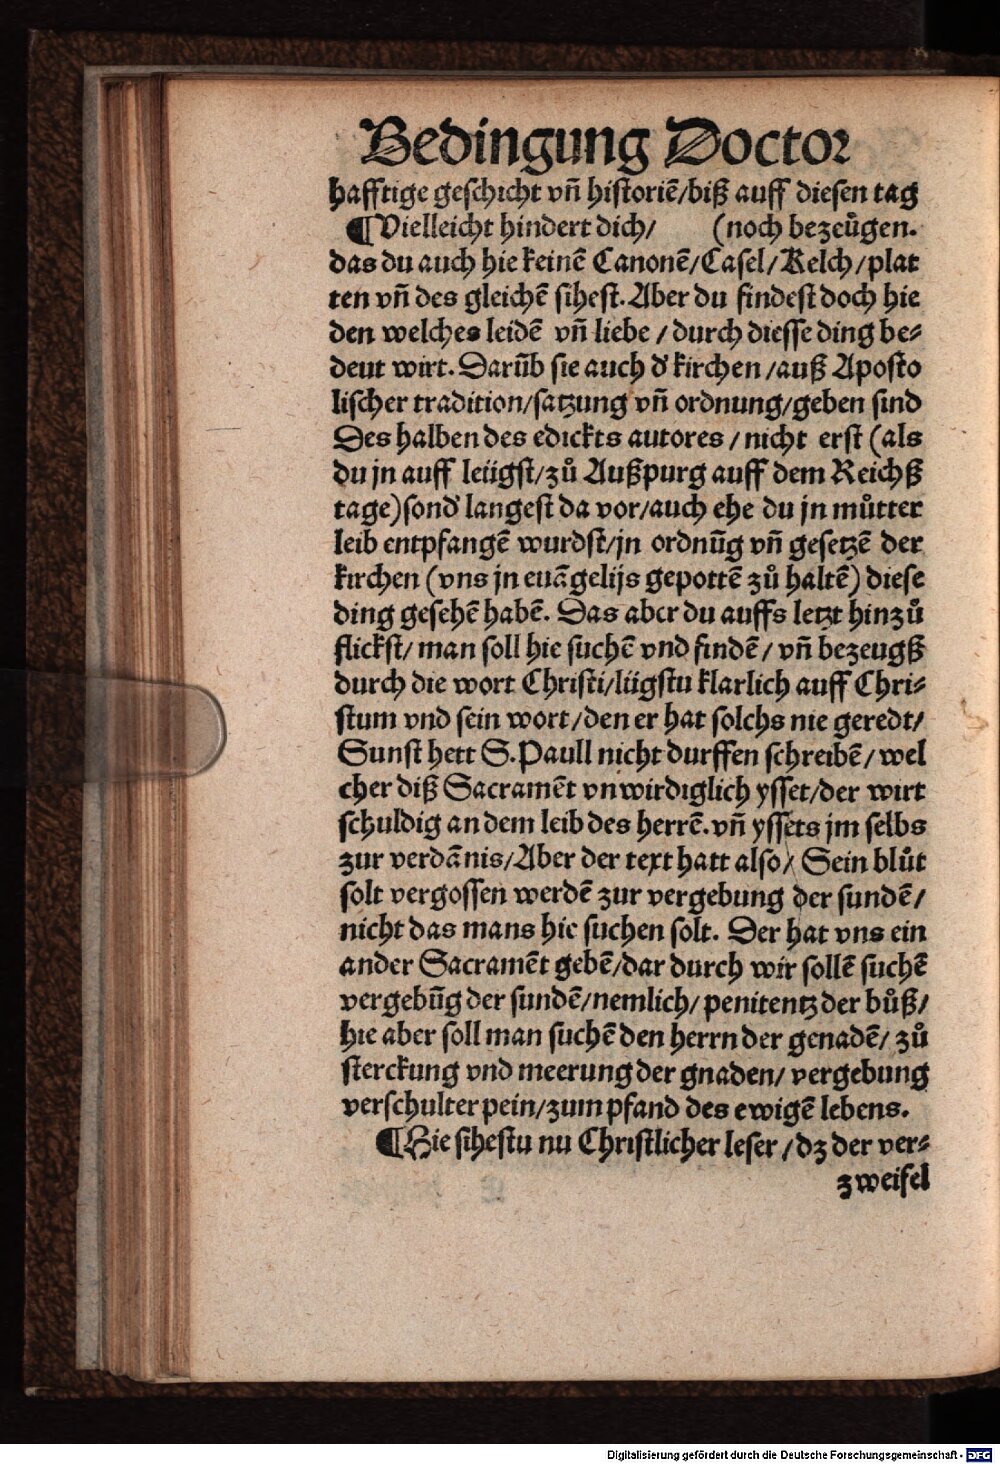 Bedingung Doctor
hafftige geschicht vn̄ historiē/biß auff diesen tag
¶Vielleicht hindert dich/ (noch bezeůgen.
das du auch hie keinē Canonē/Casel/Kelch/plat
ten vn̄ des gleichē sihest. Aber du findest doch hie
den welches leidē vn̄ liebe/durch diesse ding be⸗
deut wirt. Darūb sie auch d' kirchen/auß Aposto
lischer tradition/satzung vn̄ ordnung/geben sind
Des halben des edickts autores/nicht erst (als
du jn auff leügst/zů Außpurg auff dem Reichß
tage)sond' langest da vor/auch ehe du jn můtter
leib entpfangē wurdst/jn ordnūg vn̄ gesetzē der
kirchen (vns jn euāgelijs gepottē zů haltē) diese
ding gesehē habē. Das aber du auffs letzt hinzů
flickst/man soll hie suchē vnd findē/vn̄ bezeugß
durch die wort Christi/lügstu klarlich auff Chri⸗
stum vnd sein wort/den er hat solchs nie geredt/
Sunst hett S.Paull nicht durffen schreibē/wel
cher diß Sacramēt vnwirdiglich ysset/der wirt
schuldig an dem leib des herrē.vn̄ yssets jm selbs
zur verdānis/Aber der text hatt also/Sein blůt
solt vergossen werdē zur vergebung der sundē/
nicht das mans hie suchen solt. Der hat vns ein
ander Sacramēt gebē/dar durch wir sollē suchē
vergebūg der sundē/nemlich/penitentz der bůß/
hie aber soll man suchē den herrn der genadē/zů
sterckung vnd meerung der gnaden/vergebung
verschulter pein/zum pfand des ewigē lebens.
¶Hie sihestu nu Christlicher leser/dz der ver⸗
zweifel
Digitalisierung gefördert durch die Deutsche Forschungsgemeinschaft - DFG